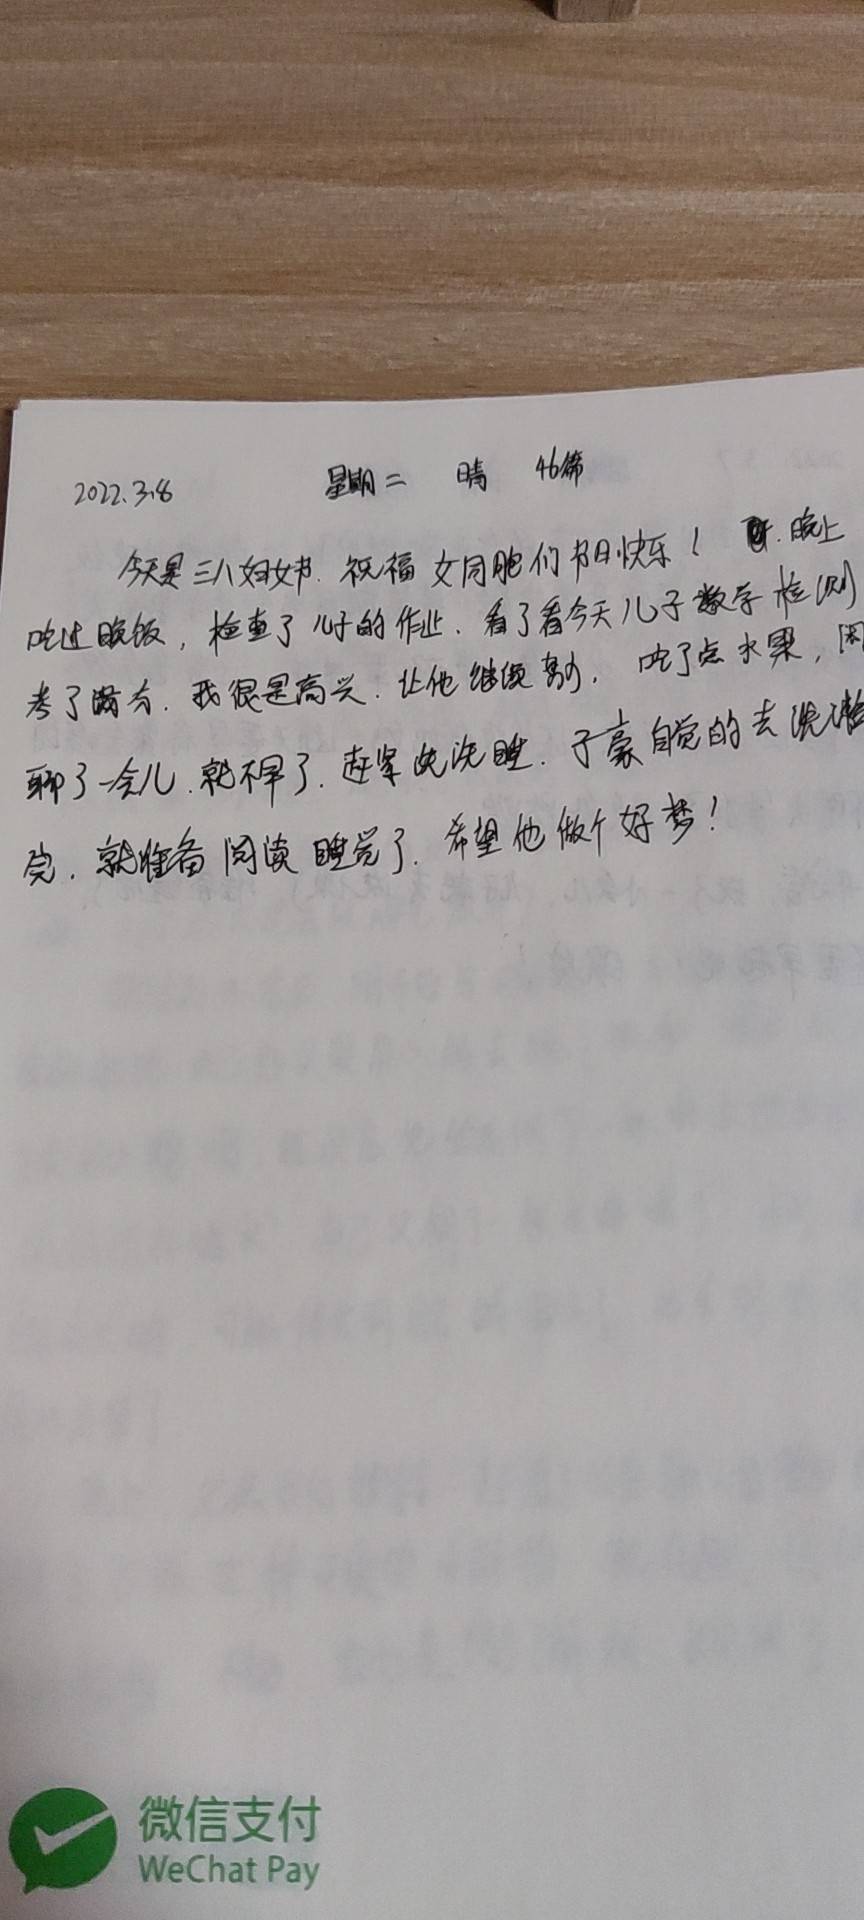 2022.3.8 星期二 晴 46篇
今天是三八妇女节. 祝福女同胞们节日快乐! 晚上
吃过晚饭, 检查了儿子的作业. 看了看今天儿子数学检测
考了满分. 我很是高兴. 让他继续努力. 吃了点水果,
聊了一会儿. 就不早了. 赶紧洗洗睡. 子豪自觉的去洗漱
完. 就准备阅读睡觉了. 希望他做个好梦!
微信支付
WeChat Pay